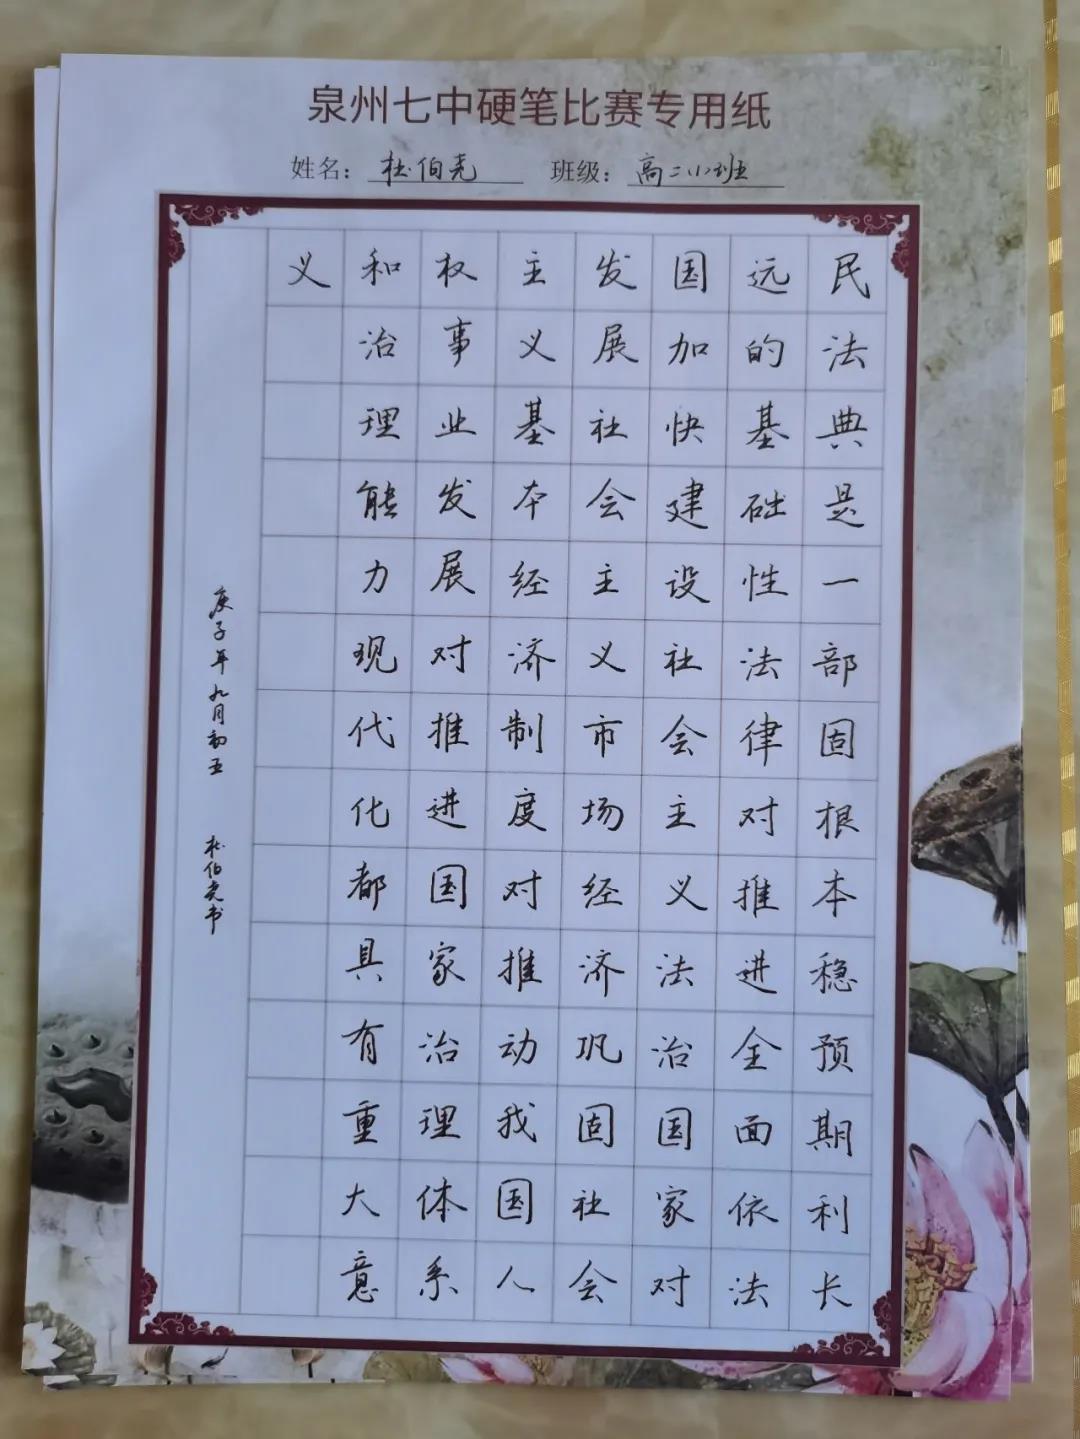 泉州七中硬笔比赛专用纸
姓名：杜伯尧 班级：高二(1)班
民法典是一部固根本稳预期利长
远的基础性法律对推进全面依法
国加快建设社会主义法治国家对
发展社会主义市场经济巩固社会
主义基本经济制度对推动我国人
权事业发展对推进国家治理体系
和治理能力现代化都具有重大意
义
庚子年九月初五 杜伯尧书